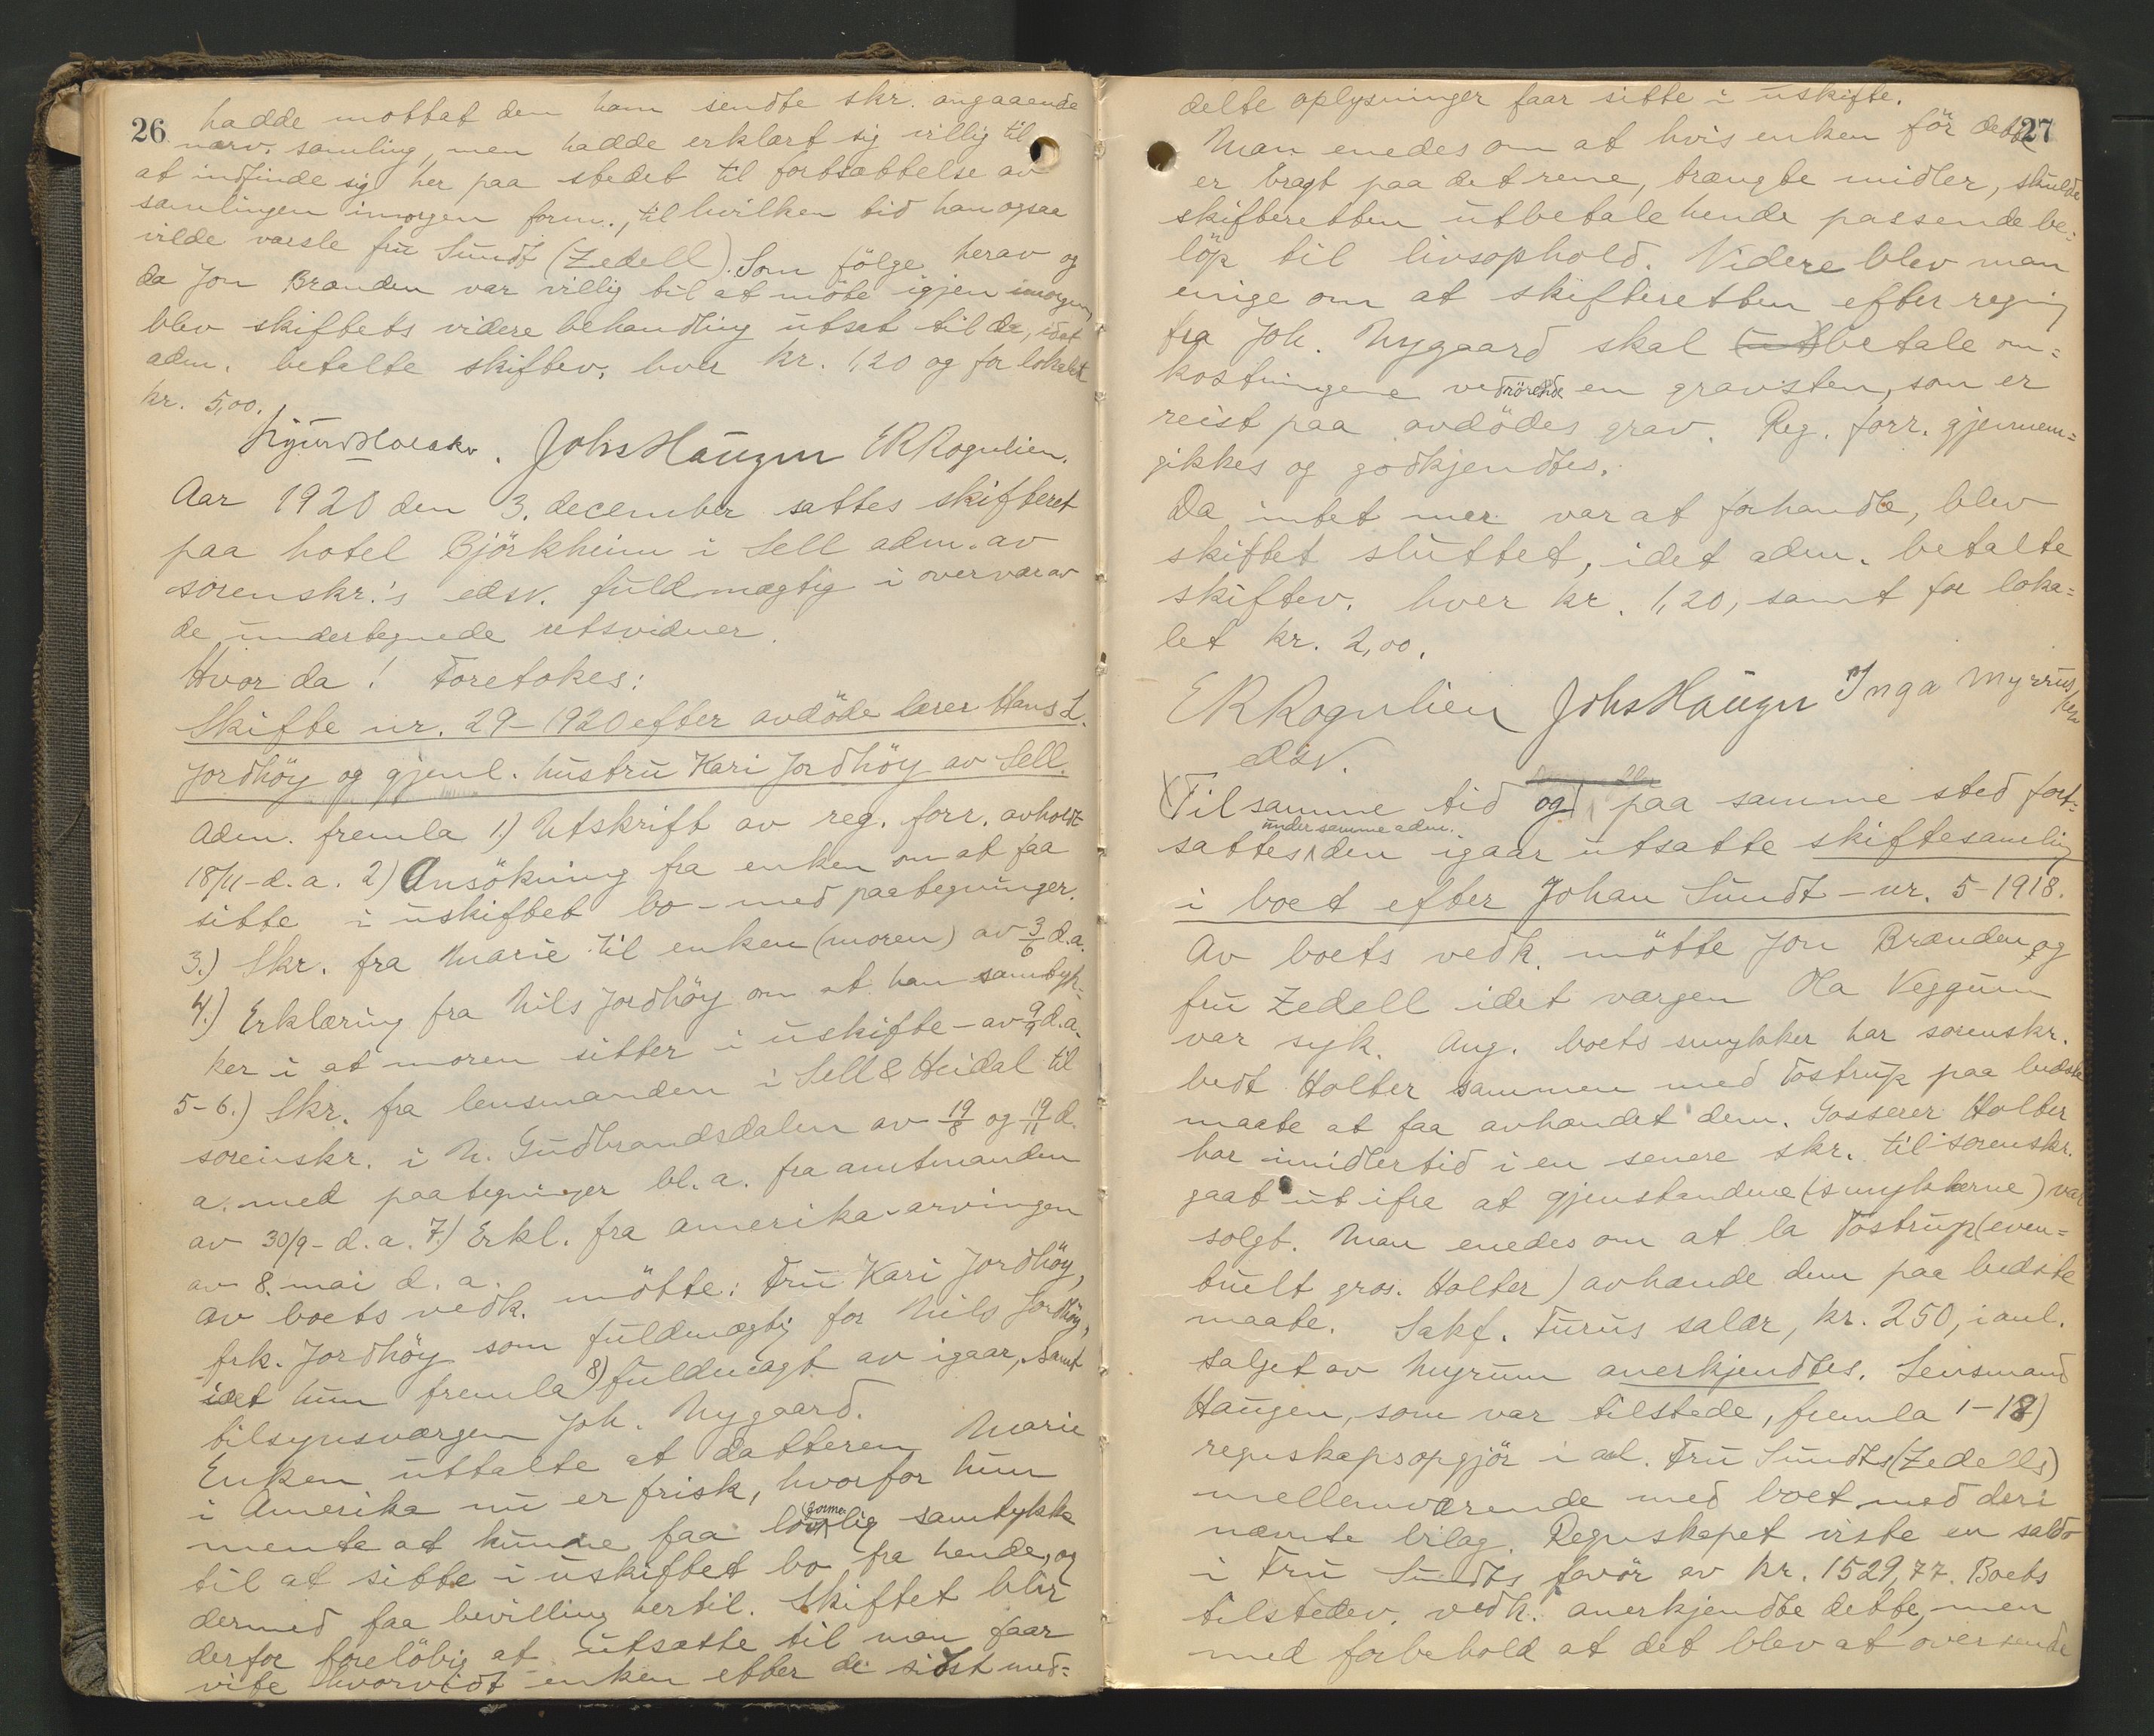 26
hadde mottat den ham sendte skr. angaaende
nærv. samling, men hadde erklært sig villig til
at indfinde sig her paa stedet til fortsættelse av
samlingen imorgen form., til hvilken tid han ogsaa
vilde varsle fru Sundt (Zedell). Som følge herav og
da Jon Brænden var villig til at møte igjen imorgen,
blev skiftets videre behandling utsat til da, idet
adm. betalte skiftev. hver kr. 1,20 og for lokalet
kr. 5,00.
Johs Haugen ER Rognlien.
Aar 1920 den 3. december sattes skifteret
paa hotel Bjørkheim i Sell adm. av
sorenskr.'s edsv. fuldmægtig i overvær av
de undertegnede retsvidner.
Hvor da! Foretokes:
Skifte nr. 29-1920 efter avdøde lærer Hans L.
Jordhøy og gjenl. hustru Kari Jordhøy av Sell.
Adm. fremla 1.) Utskrift av reg. forr. avholdt
18/11-d.a. 2) Ansøkning fra enken om at faa
sitte i uskiftet bo - med paategninger.
3.) Skr. fra Marie til enken (moren) av 3/6 d.a.
4.) Erklæring fra Nils Jordhøy om at han samtyk=
ker i at moren sitter i uskifte - av 9/9 d.a.
5-6.) Skr. fra lensmanden i Sell & Heidal til
sorenskr. i N. Gudbrandsdalen av 19/8 og 19/11 d.
a. med paategninger bl.a. fra amtmanden
av 30/9-d.a. 7.) Erkl. fra amerika-arvingen
av 8. mai d.a.
Av boets vedk. møtte: Fru Kari Jordhøy,
frk. Jordhøy som fuldmægtig for Nils Jordhøy,
idet hun fremla 8) fuldmagt av igaar, samt
tilsynsværgen Joh. Nygaard.
Enken uttalte at datteren Marie
i Amerika nu er frisk, hvorfor hun
mente at kunne faa lovformelig samtykke
til at sitte i uskiftet bo fra hende, og
dermed faa bevilling hertil. Skiftet blir
derfor foreløbig at utsætte til man faar
vite hvorvidt enken etter de sidst med=
27
delte oplysninger faar sitte i uskifte.
Man enedes om at hvis enken før dette
er bragt paa det rene, trængte midler, skulde
skifteretten utbetale hende passende be=
løp til livsophold. Videre blev man
enige om at skifteretten efter regning
fra Joh. Nygaard skal (ut)betale om=
kostningene vedrørende en gravsten, som er
reist paa avdødes grav. Reg. forr. gjennem=
gikkes og godkjendtes.
Da intet mer var at forhandle, blev
skiftet sluttet, idet adm. betalte
skiftev. hver kr. 1,20, samt for loka=
let kr. 2,00.
ER Rognlien Johs Haugen Inga
edsv.
Til samme tid og paa samme sted fort=
sattes under samme adm. den igaar utsatte skiftesamling
i boet efter Johan Sundt - nr. 5-1918.
Av boets vedk. møtte Jon Brænden og
fru Zedell idet værgen Ola Veggum
var syk. Ang. boets smykker har sorenskr.
bedt Holter sammen med Tostrup paa bedste
maate at faa avhændet dem. Grosserer Holter
har imidlertid i en senere skr. til sorenskr.
gaat ut ifra at gjenstandene (smykkerne) var
solgt. Man enedes om at la Tostrup (even=
tuelt gros. Holter) avhænde dem paa bedste
maate. Sakf. Furus salær, kr. 250, i anl.
salget av Myrum anerkjendtes. Lensmand
Haugen, som var tilstede, fremla 1-18)
regnskapsopgjør i anl. Fru Sundts (Zedells)
mellemværende med boet med deri
nævnte bilag. Regnskapet viste en saldo
i Fru Sundts favør av kr. 1529,77. Boets
tilstedev. vedk. anerkjendte dette, men
med forbehold at det blev at oversende